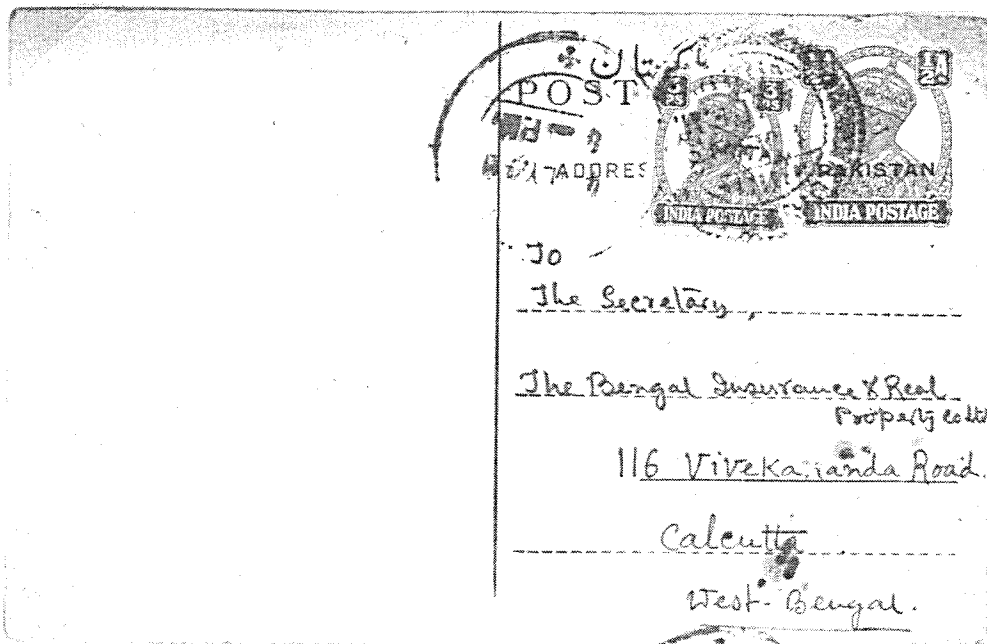 پاکستان
POST
ADDRES
½A
PAKISTAN
INDIA POSTAGE
INDIA POSTAGE
To
The Secretary,
The Bengal Insurance & Real
Property Co Ltd
116 Vivekananda Road.
Calcutta
West-Bengal.